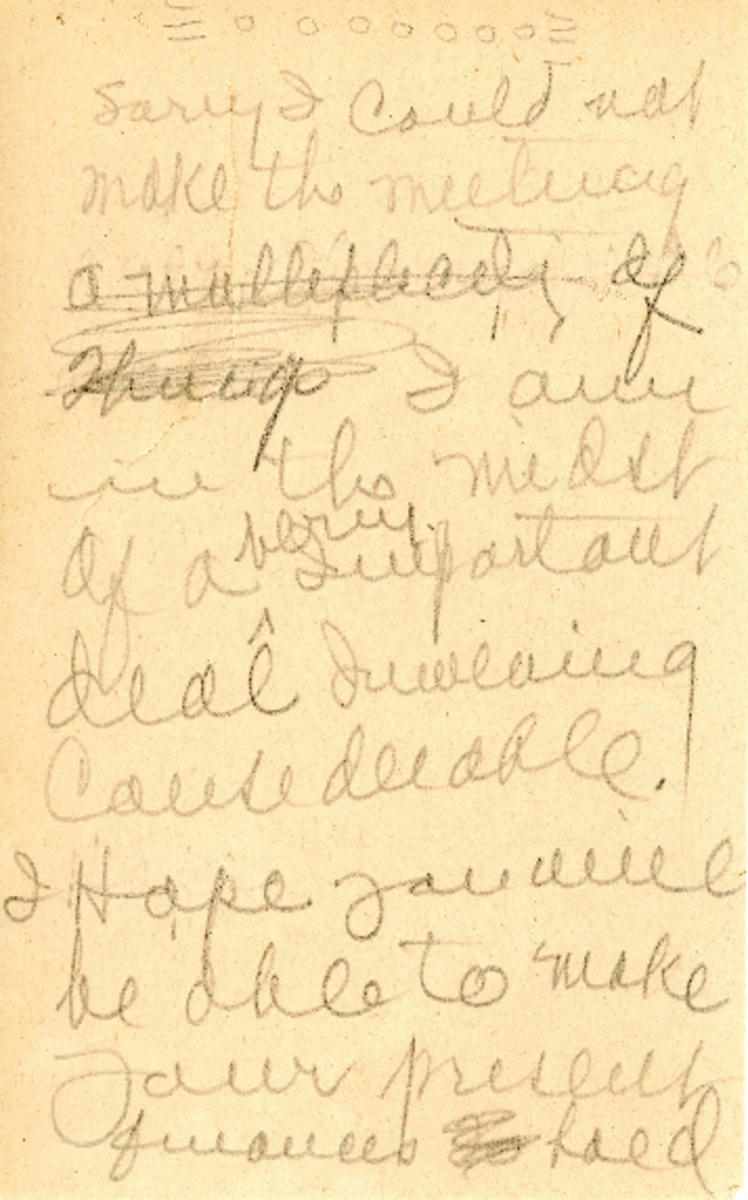 Sorry I Could not
make the meeting
a multiplicity of
Things I am
in the midst
of a very Important
deal Involving
Considerable.
I Hope you will
be able to make
your present
finances hold